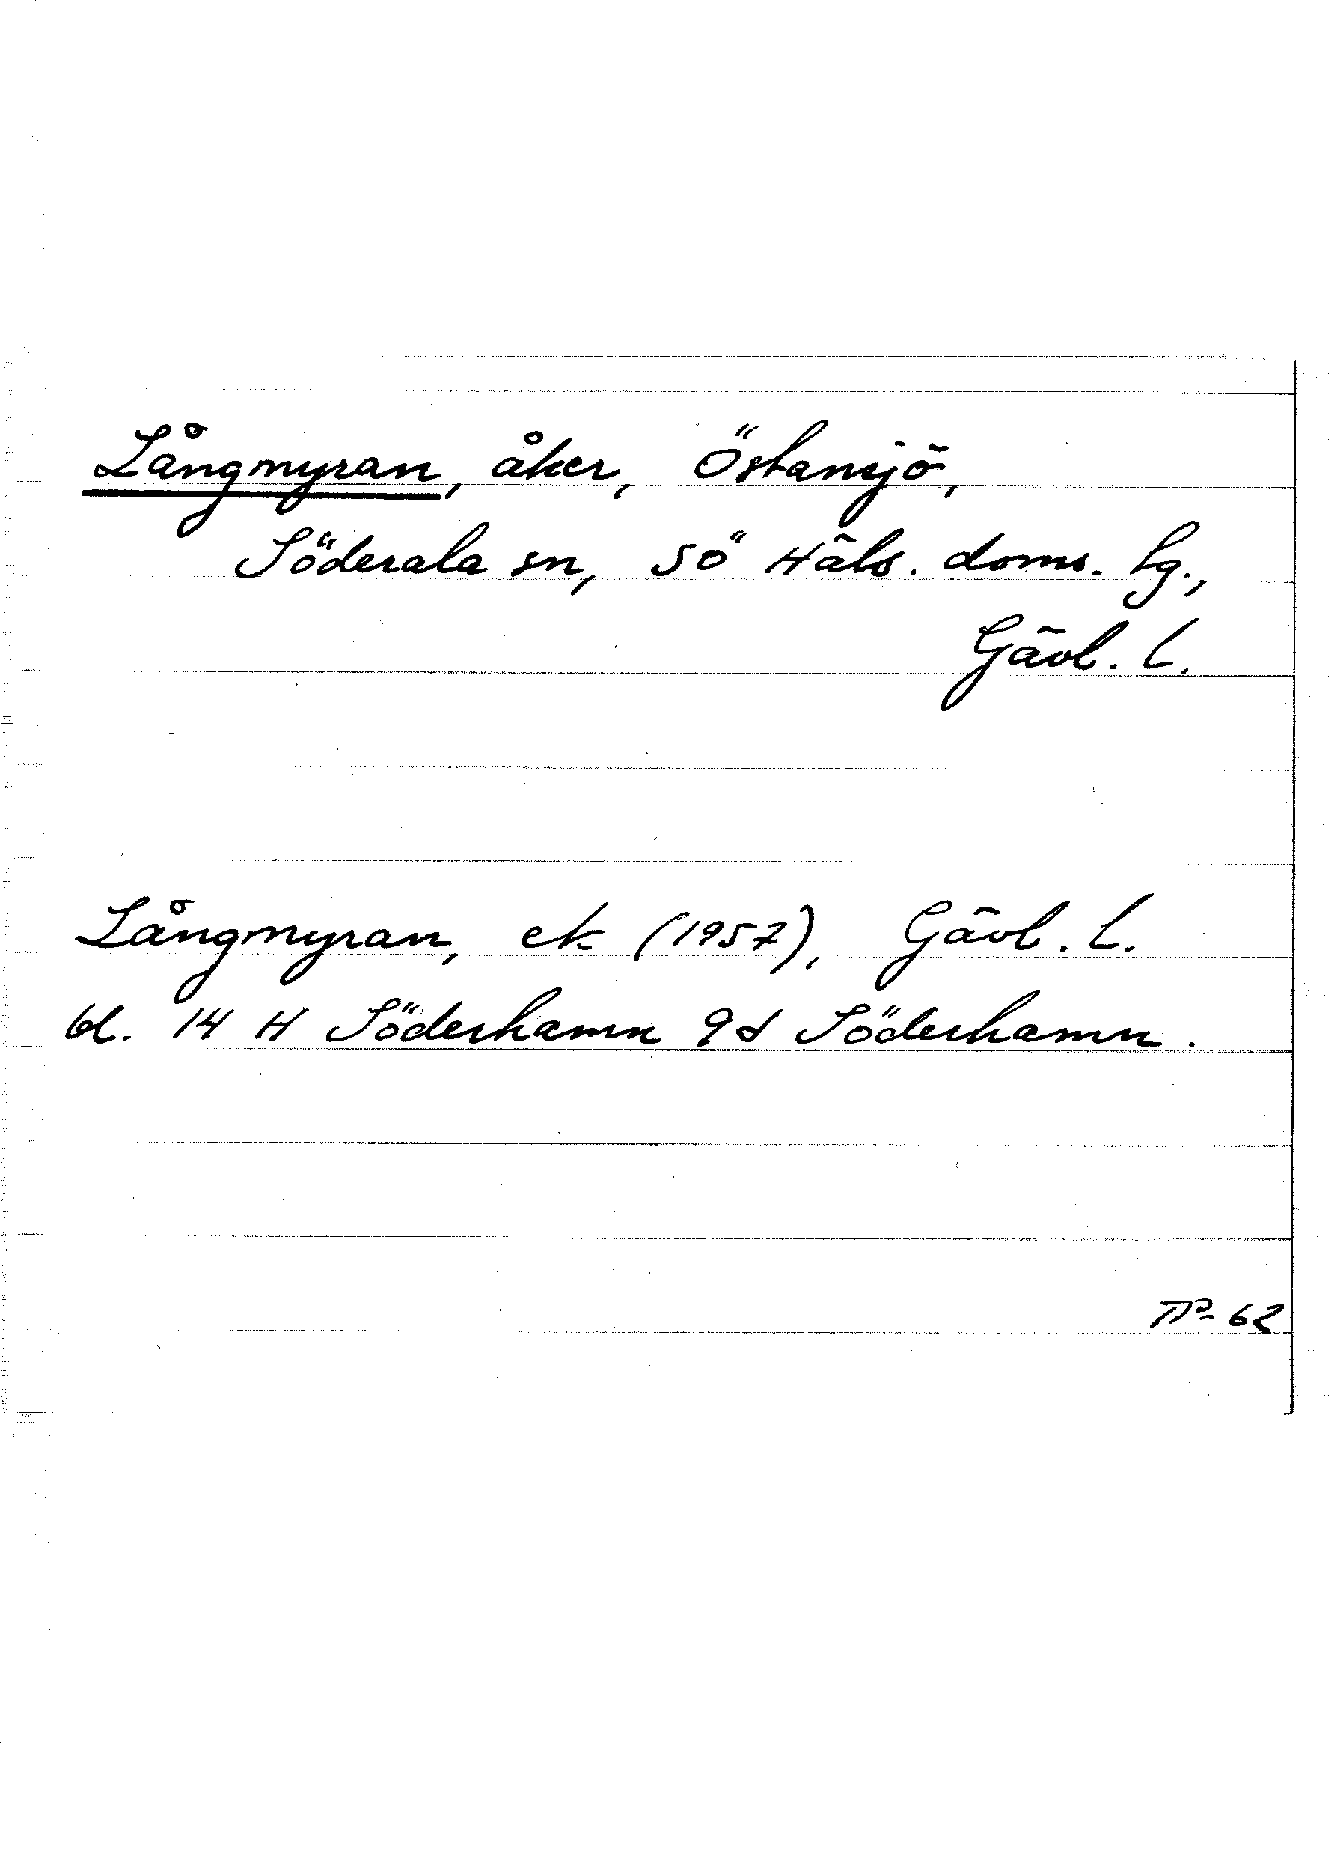 Långmyran, åker, Östansjö,
Söderala sn, Sö Häls. doms. lg.,
Gävl. l.
Långmyran, ek (1957), Gävl. l.
bl. 14 H Söderhamn 9d Söderhamn.
62